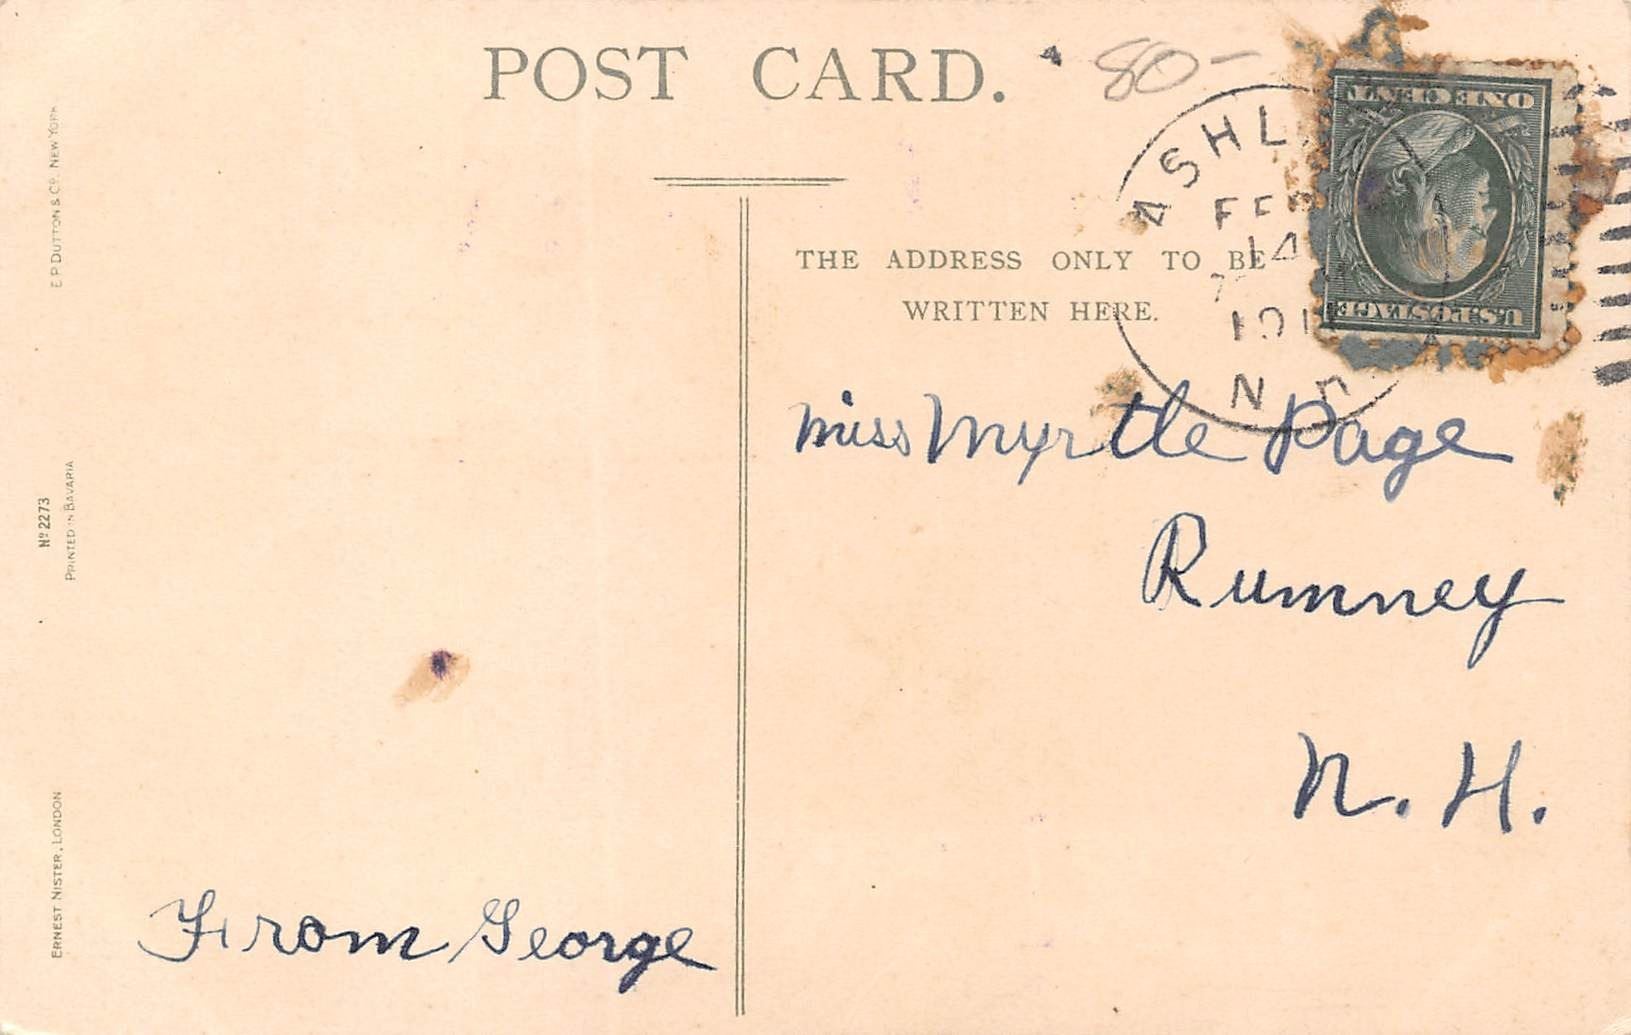 POST CARD.
80-
ASHL
FEB
14
191
N.H.
ONE CENT
U.S. POSTAGE
THE ADDRESS ONLY TO BE
WRITTEN HERE.
Miss Myrtle Page
Rumney
N. H.
From George
E.P. DUTTON & Co. NEW YORK
No 2273
PRINTED IN BAVARIA
ERNEST NISTER, LONDON